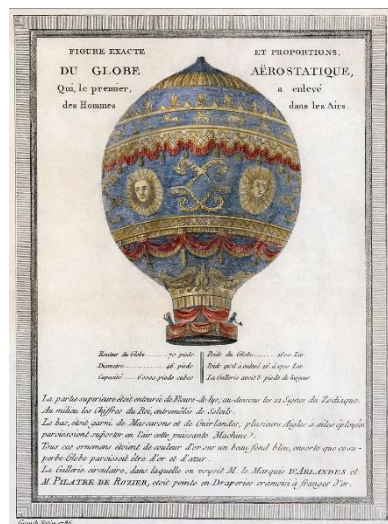 FIGURE EXACTE ET PROPORTIONS,
DU GLOBE AËROSTATIQUE,
Qui, le premier, a enlevé
des Hommes dans les Airs.
Hauteur du Globe 70 pieds.
Diametre 46 pieds
Capacité 60000 pieds cubes
Poids du Globe 1600 Liv.
Poids qu'il a enlevé 16 à 1700 liv.
La Gallerie avoit 3 pieds de largeur
La partie superieure étoit entourée de Fleurs-de-lys, au-dessous les 12 Signes du Zodiaque.
Au milieu les Chiffres du Roi, entremêlés de Soleils.
Le bas, étoit garni de Mascarons et de Guirlandes, plusieurs Aigles a ailes éployées
paroissoient suporter en l'air cette puissante Machine.
Tous ces ornemens étoient de couleur d'or sur un beau fond bleu, ensorte que ce su-
perbe Globe paroissoit être d'or et d'azur.
La Gallerie circulaire, dans laquelle on voyoit M. le Marquis D'ARLANDES et
M. PILATRE DE ROZIER, étoit peinte en Draperies cramoisi à franges d'or.
1786